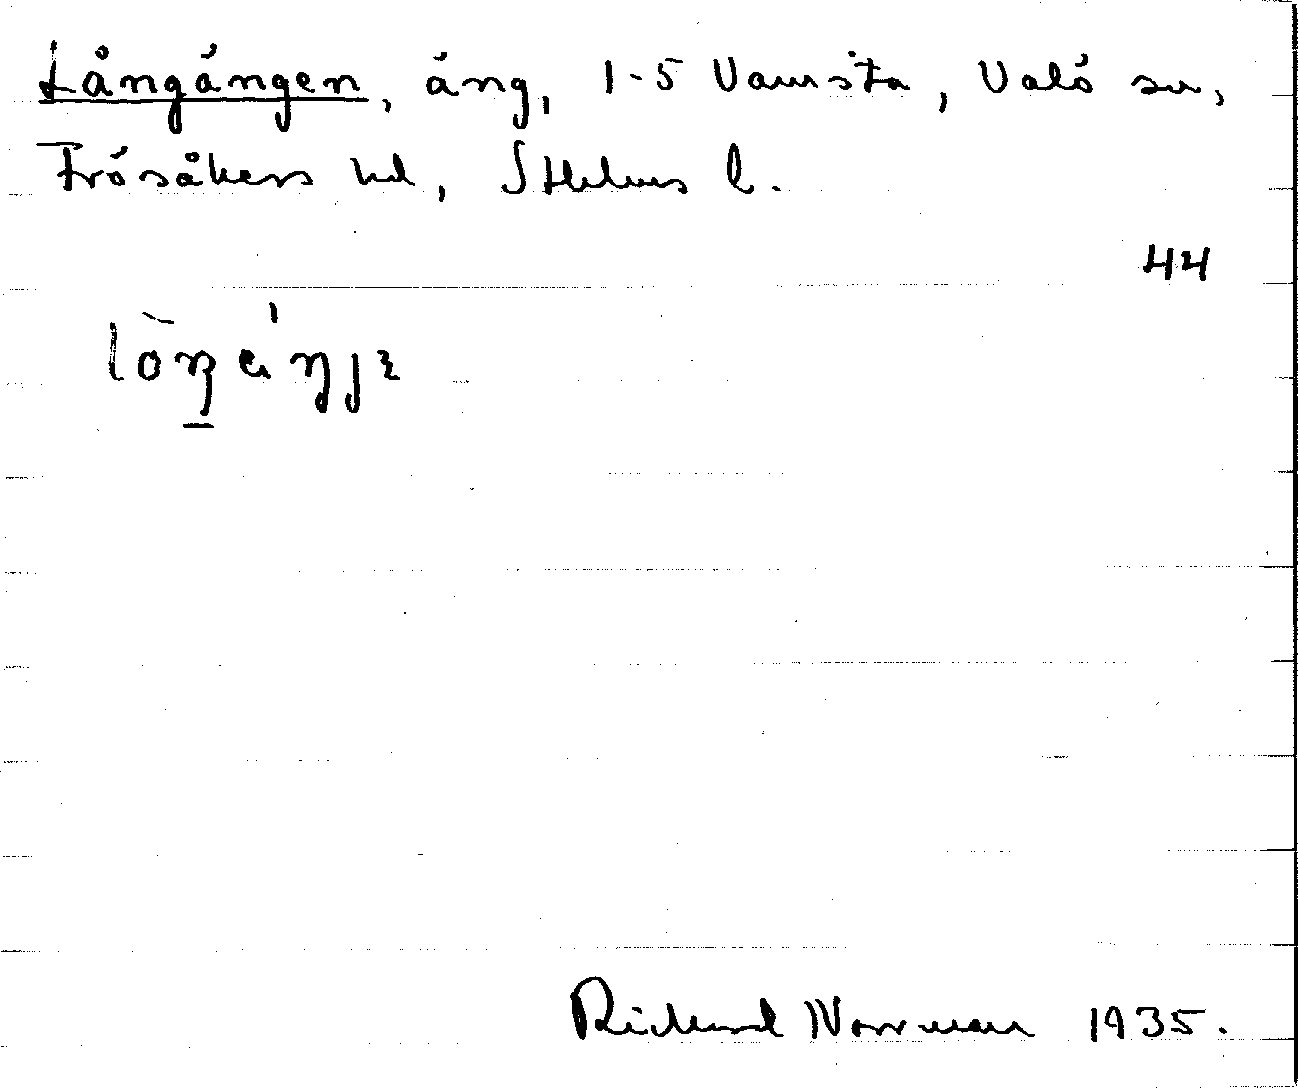 Långängen, äng, 1-5 Vamsta, Valö sn,
Frösåkers hd, Sthlms l.
44
lo̖ŋäŋjɛ
Richard Norrman 1935.